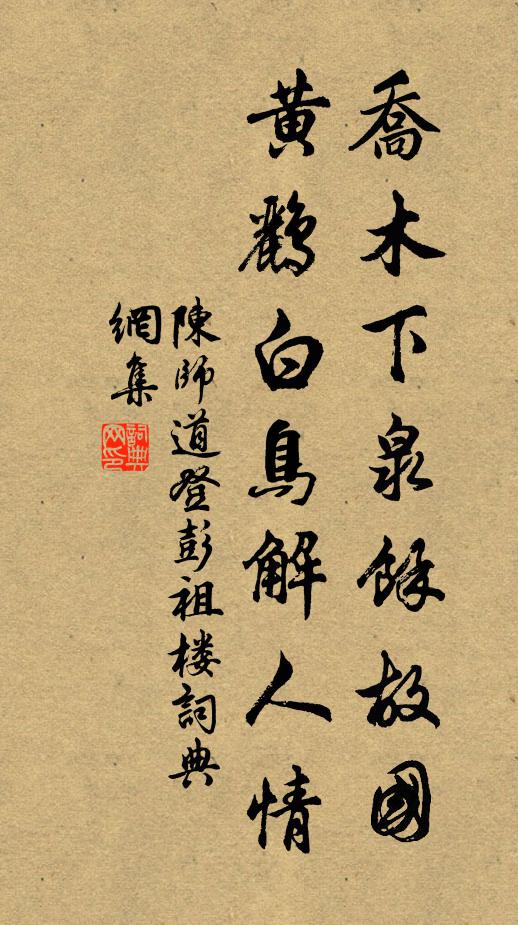 喬木下泉餘故國
黃鸝白鳥解人情
陳師道登彭祖楼詞典
網集
詞典網印